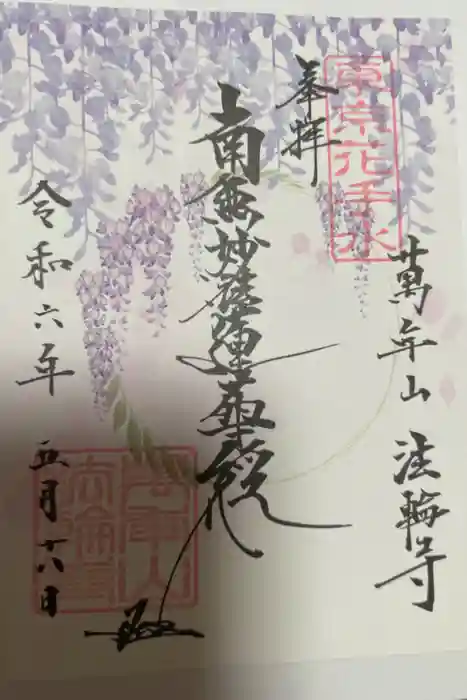 東京花手水
奉拝
萬年山 法輪寺
南無妙法蓮華経
令和六年 五月十八日